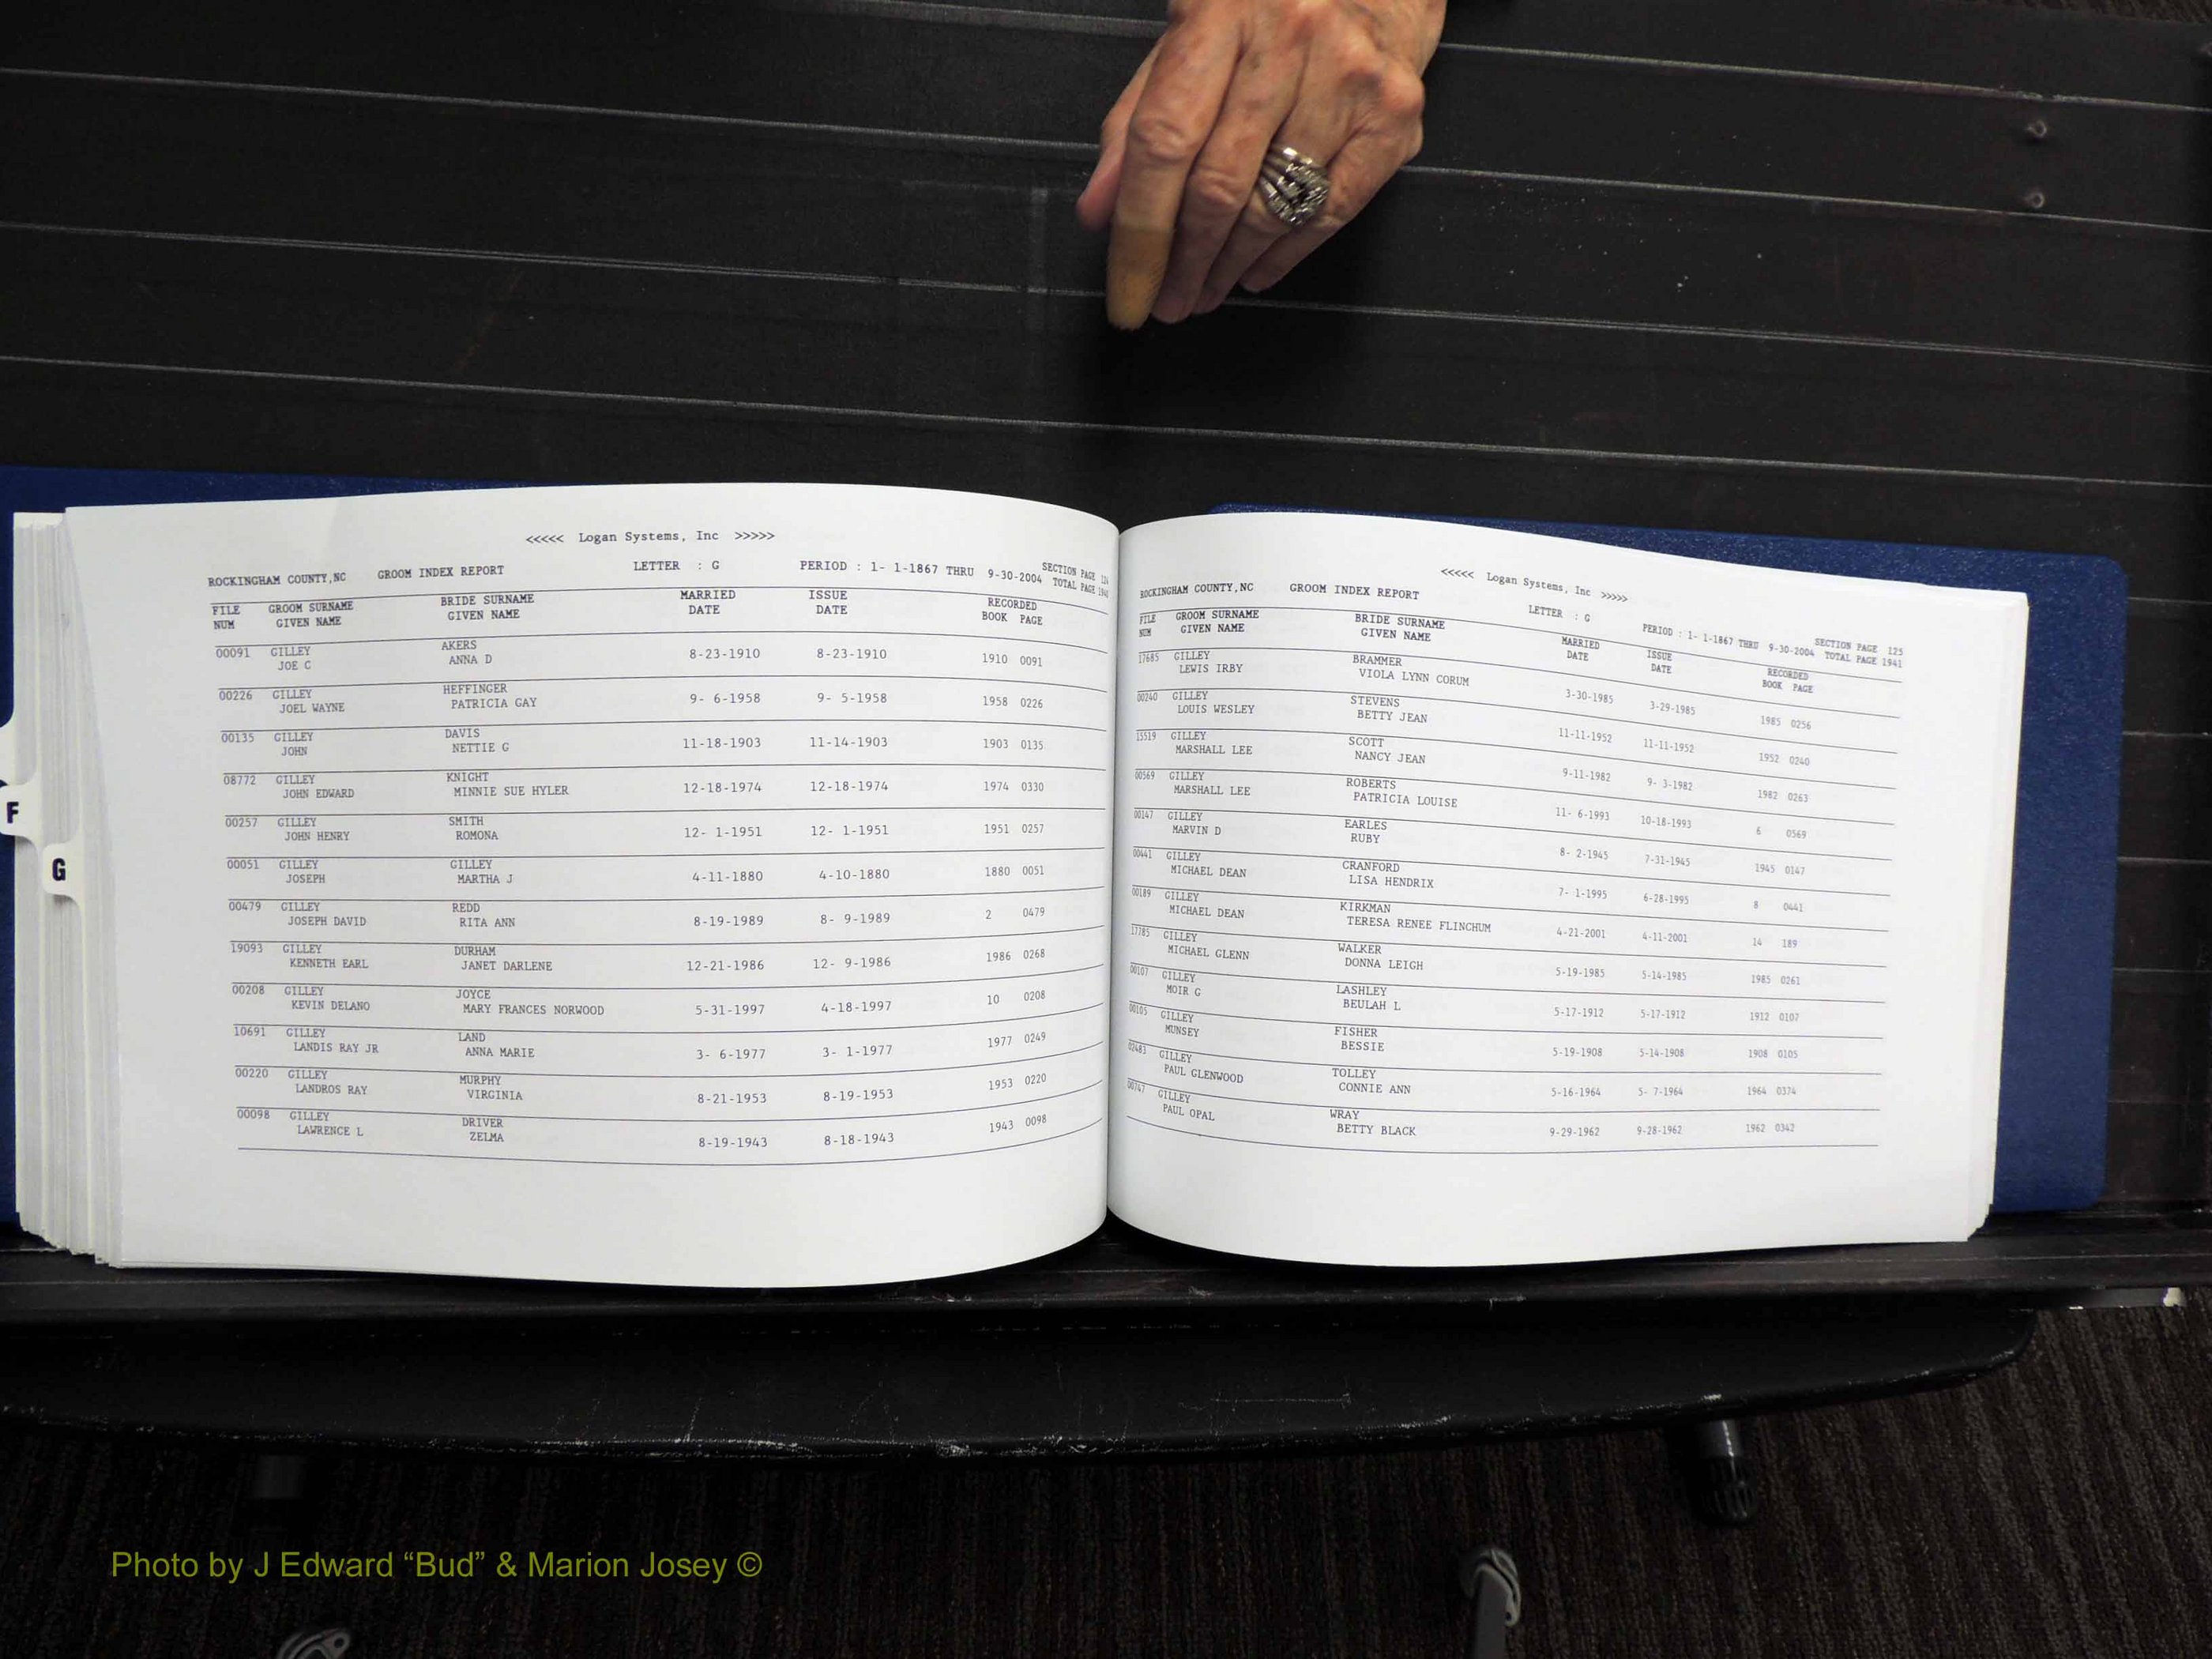 <<<<< Logan Systems, Inc >>>>>
ROCKINGHAM COUNTY,NC GROOM INDEX REPORT LETTER : G PERIOD : 1- 1-1867 THRU 9-30-2004 SECTION PAGE
TOTAL PAGE
FILE GROOM SURNAME BRIDE SURNAME MARRIED ISSUE RECORDED
NUM GIVEN NAME GIVEN NAME DATE DATE BOOK PAGE
00091 GILLEY AKERS 8-23-1910 8-23-1910 1910 0091
JOE C ANNA D
00226 GILLEY HEFFINGER 9- 6-1958 9- 5-1958 1958 0226
JOEL WAYNE PATRICIA GAY
00135 GILLEY DAVIS 11-18-1903 11-14-1903 1903 0135
JOHN NETTIE G
08772 GILLEY KNIGHT 12-18-1974 12-18-1974 1974 0330
JOHN EDWARD MINNIE SUE HYLER
00257 GILLEY SMITH 12- 1-1951 12- 1-1951 1951 0257
JOHN HENRY ROMONA
00051 GILLEY GILLEY 4-11-1880 4-10-1880 1880 0051
JOSEPH MARTHA J
00479 GILLEY REDD 8-19-1989 8- 9-1989 2 0479
JOSEPH DAVID RITA ANN
19093 GILLEY DURHAM 12-21-1986 12- 9-1986 1986 0268
KENNETH EARL JANET DARLENE
00208 GILLEY JOYCE 5-31-1997 4-18-1997 10 0208
KEVIN DELANO MARY FRANCES NORWOOD
10691 GILLEY LAND 3- 6-1977 3- 1-1977 1977 0249
LANDIS RAY JR ANNA MARIE
00220 GILLEY MURPHY 8-21-1953 8-19-1953 1953 0220
LANDROS RAY VIRGINIA
00098 GILLEY DRIVER 8-19-1943 8-18-1943 1943 0098
LAWRENCE L ZELMA
F
G
<<<<< Logan Systems, Inc >>>>>
ROCKINGHAM COUNTY,NC GROOM INDEX REPORT LETTER : G PERIOD : 1- 1-1867 THRU 9-30-2004 SECTION PAGE 125
TOTAL PAGE 1941
FILE GROOM SURNAME BRIDE SURNAME MARRIED ISSUE RECORDED
NUM GIVEN NAME GIVEN NAME DATE DATE BOOK PAGE
17685 GILLEY BRAMMER 3-30-1985 3-29-1985 1985 0256
LEWIS IRBY VIOLA LYNN CORUM
00240 GILLEY STEVENS 11-11-1952 11-11-1952 1952 0240
LOUIS WESLEY BETTY JEAN
15519 GILLEY SCOTT 9-11-1982 9- 3-1982 1982 0263
MARSHALL LEE NANCY JEAN
00569 GILLEY ROBERTS 11- 6-1993 10-18-1993 6 0569
MARSHALL LEE PATRICIA LOUISE
00147 GILLEY EARLES 8- 2-1945 7-31-1945 1945 0147
MARVIN D RUBY
00441 GILLEY CRANFORD 7- 1-1995 6-28-1995 8 0441
MICHAEL DEAN LISA HENDRIX
00189 GILLEY KIRKMAN 4-21-2001 4-11-2001 14 189
MICHAEL DEAN TERESA RENEE FLINCHUM
17785 GILLEY WALKER 5-19-1985 5-14-1985 1985 0261
MICHAEL GLENN DONNA LEIGH
00107 GILLEY LASHLEY 5-17-1912 5-17-1912 1912 0107
MOIR G BEULAH L
00105 GILLEY FISHER 5-19-1908 5-14-1908 1908 0105
MUNSEY BESSIE
02483 GILLEY TOLLEY 5-16-1964 5- 7-1964 1964 0374
PAUL GLENWOOD CONNIE ANN
00747 GILLEY WRAY 9-29-1962 9-28-1962 1962 0342
PAUL OPAL BETTY BLACK
Photo by J Edward “Bud” & Marion Josey ©